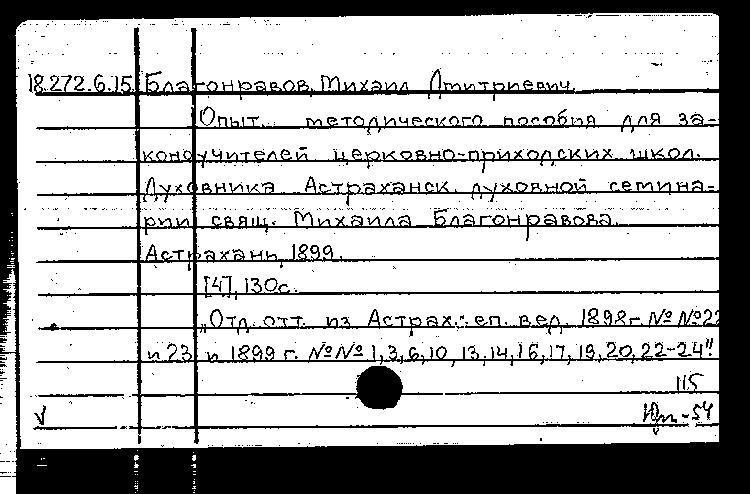 18.272.6.15 Благонравов, Михаил Дмитриевич.
Опыт методического пособия для за-
коноучителей церковно-приходских школ.
Духовника Астраханск. духовной семина-
рии свящ. Михаила Благонравова.
Астрахань, 1899.
[4], 130с.
„Отд. отт. из Астрах. еп. вед. 1898г. №№22
и 23 и 1899 г. №№ 1,3,6,10,13,14,16,17,19,20,22-24"
115
V -54